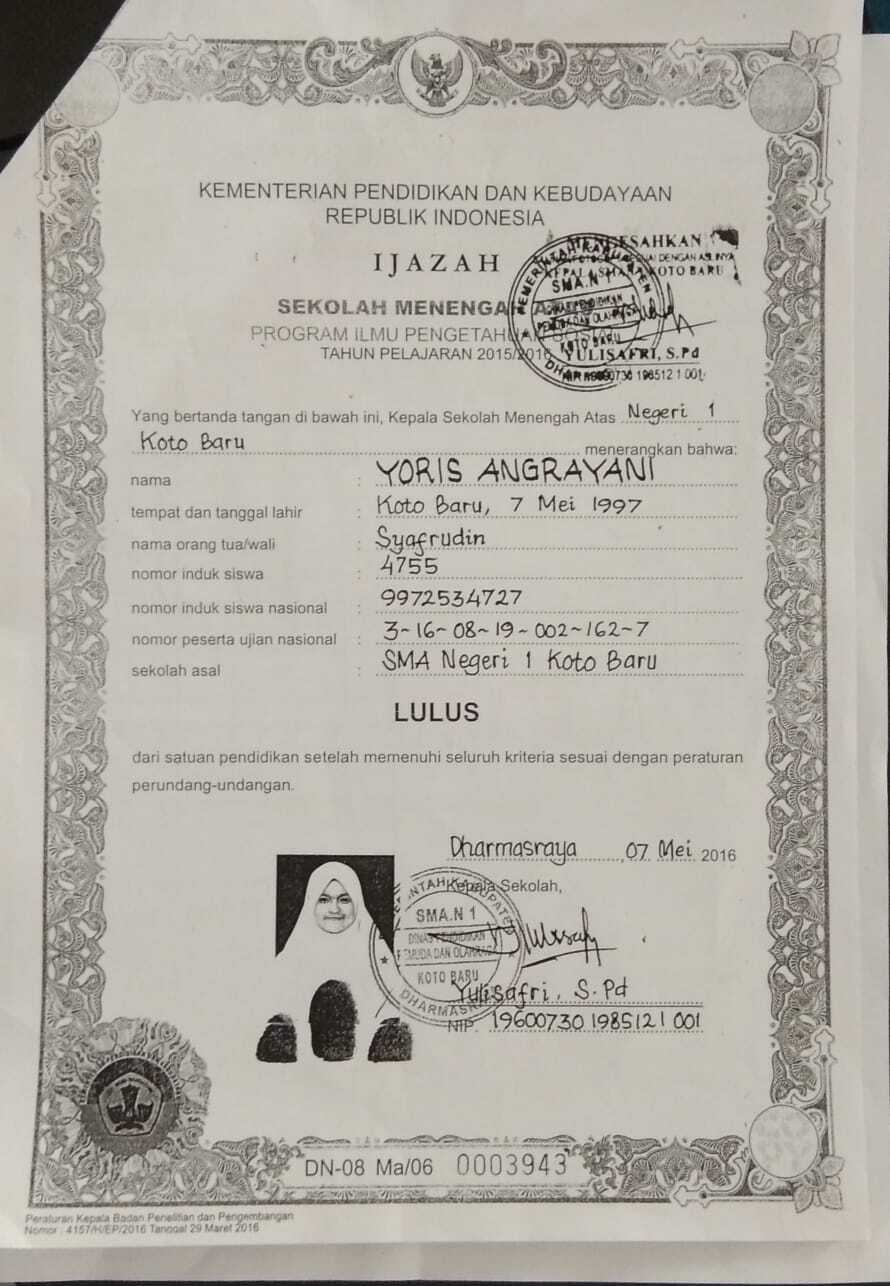 KEMENTERIAN PENDIDIKAN DAN KEBUDAYAAN
REPUBLIK INDONESIA
IJAZAH
SEKOLAH MENENGAH
PROGRAM ILMU PENGETAHUAN SOSIAL
TAHUN PELAJARAN 2015/2016
SMA.N 1
KOTO BARU
YULISAFRI, S.Pd
Yang bertanda tangan di bawah ini, Kepala Sekolah Menengah Atas Negeri 1
Koto Baru menerangkan bahwa:
nama : YORIS ANGRAYANI
tempat dan tanggal lahir : Koto Baru, 7 Mei 1997
nama orang tua/wali : Syafrudin
nomor induk siswa : 4755
nomor induk siswa nasional : 9972534727
nomor peserta ujian nasional : 3-16-08-19-002-162-7
sekolah asal : SMA Negeri 1 Koto Baru
LULUS
dari satuan pendidikan setelah memenuhi seluruh kriteria sesuai dengan peraturan
perundang-undangan.
Dharmasraya, 07 Mei 2016
Kepala Sekolah,
SMA.N 1
DINAS PENDIDIKAN
PEMUDA DAN OLAHRAGA
KOTO BARU
DHARMASRAYA
Yulisafri, S.Pd
NIP. 19600730 198512 1 001
DN-08 Ma/06 0003943
Peraturan Kepala Badan Penelitian dan Pengembangan
Nomor : 4157/H/EP/2016 Tanggal 29 Maret 2016